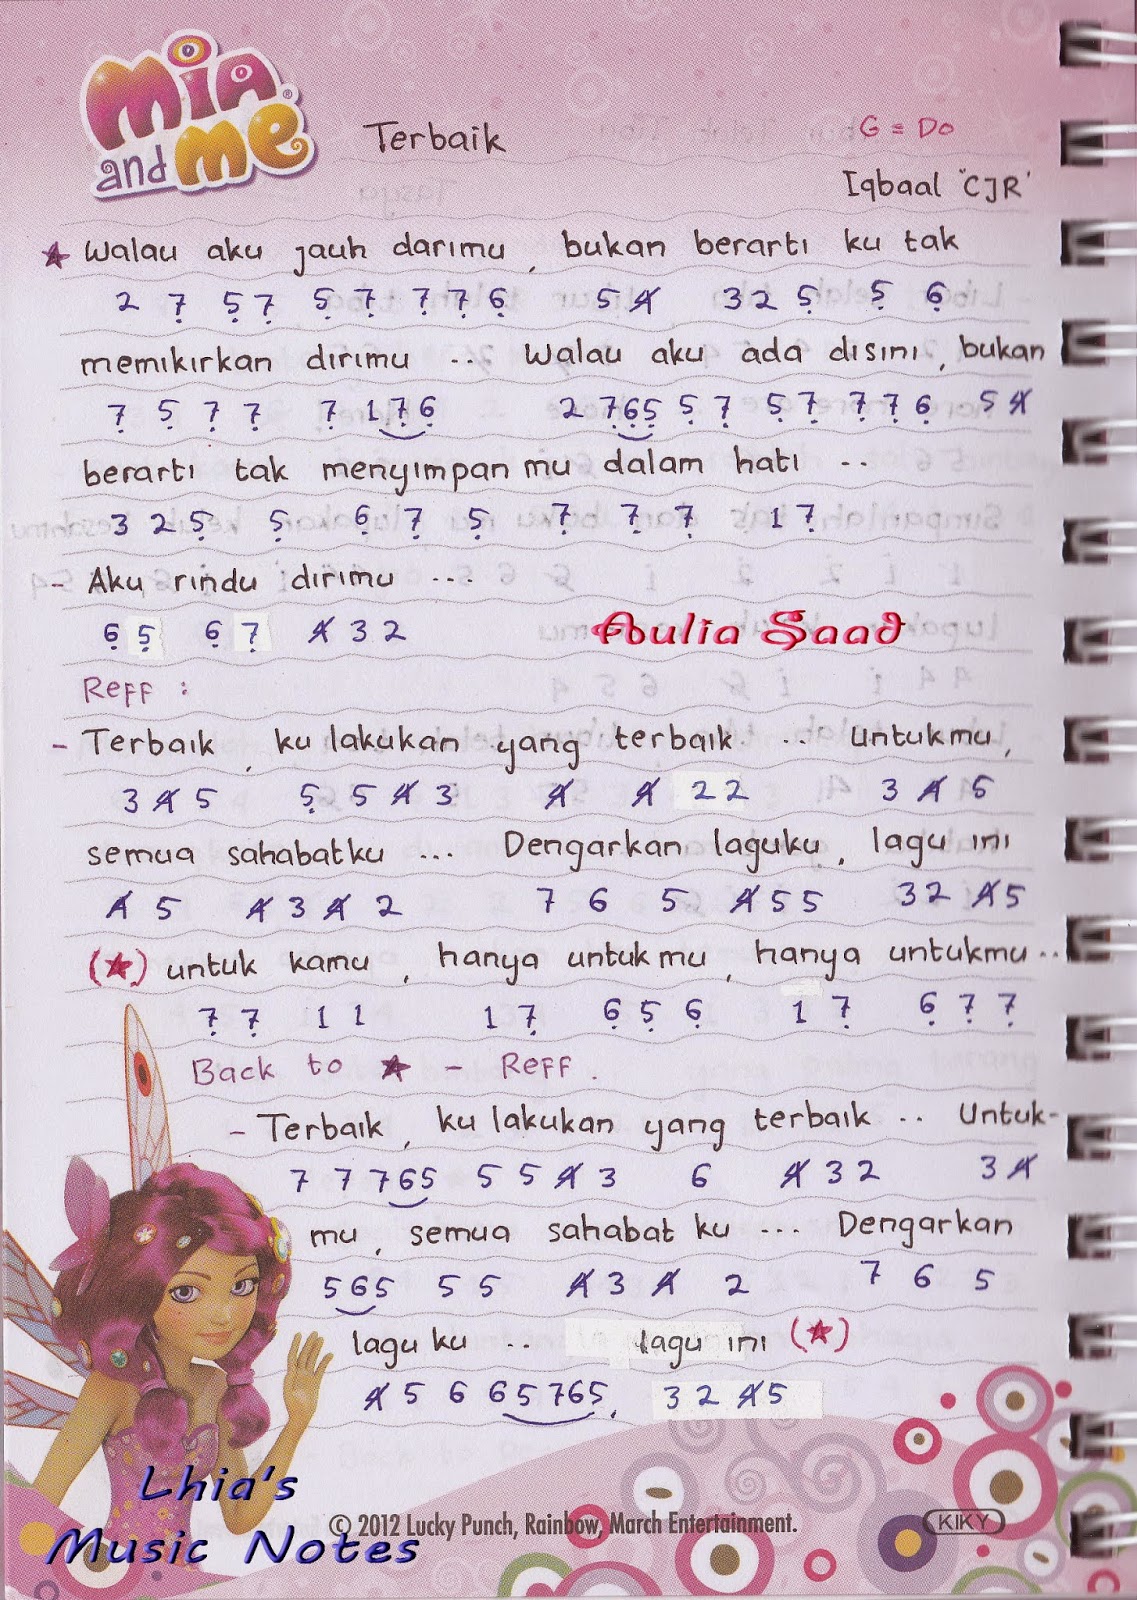 Mia and me
Terbaik
G = Do
Iqbaal "CJR"
★ Walau aku jauh darimu, bukan berarti ku tak
2 7̣ 5̣ 7̣ 5̣ 7̣ 7̣ 7̣ 6̣ 5 4̸ 3 2 5̣ 5̣ 6̣
memikirkan dirimu .. Walau aku ada disini, bukan
7̣ 5̣ 7̣ 7̣ 7̣ 1 7̣ 6̣ 2 7̣ 6̣ 5̣ 5̣ 7̣ 5̣ 7̣ 7̣ 7̣ 6̣ 5 4̸
berarti tak menyimpan mu dalam hati ..
3 2 5̣ 5̣ 6̣ 7̣ 5̣ 7̣ 7̣ 7̣ 1 7̣
- Aku rindu dirimu ...
6̣ 5̣ 6̣ 7̣ 4̸ 3 2
Aulia Saad
Reff :
- Terbaik, ku lakukan yang terbaik .. untukmu,
3 4̸ 5 5̣ 5 4̸ 3 4̸ 4̸ 2 2 3 4̸ 5
semua sahabatku ... Dengarkan laguku, lagu ini
4̸ 5 4̸ 3 4̸ 2 7 6 5 4̸ 5 5 3 2 4̸ 5
(★) untuk kamu, hanya untuk mu, hanya untukmu ..
7̣ 7̣ 1 1 1 7̣ 6̣ 5̣ 6̣ 1 7̣ 6̣ 7̣ 7̣
Back to ★ - Reff.
- Terbaik, ku lakukan yang terbaik .. Untuk-
7 7 7 6 5 5 5 4̸ 3 6 4̸ 3 2 3 4̸
mu, semua sahabat ku ... Dengarkan
5 6 5 5 5 4̸ 3 4̸ 2 7 6 5
lagu ku .. lagu ini (★)
4̸ 5 6 6 5 7 6 5, 3 2 4̸ 5
Lhia's
Music Notes
© 2012 Lucky Punch, Rainbow, March Entertainment.
KIKY